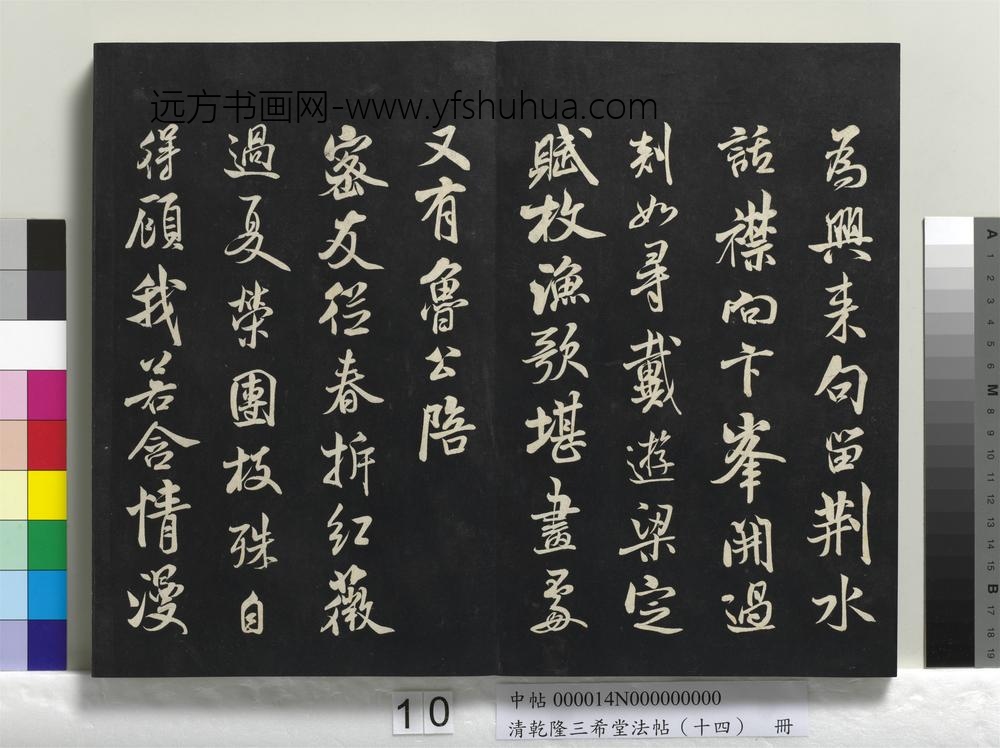 远方书画网-www.yfshuhua.com
為興來句留荆水
話襟向卞峯開過
剡如尋戴遊梁定
賦枚漁歌堪畫處
又有魯公陪
密友從春拆紅薇
過夏榮團枝殊自
得顧我若含情漫
10
中帖 000014N000000000
清乾隆三希堂法帖（十四） 冊
A
1
2
3
4
5
6
M
8
9
10
11
12
13
14
15
B
17
18
19